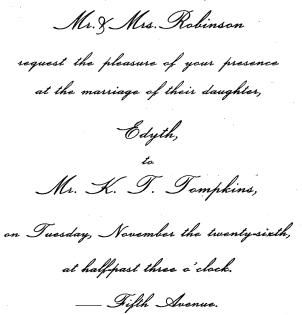 Mr. & Mrs. Robinson
request the pleasure of your presence
at the marriage of their daughter,
Edyth,
to
Mr. K. T. Tompkins,
on Tuesday, November the twenty-sixth,
at half-past three o'clock.
— Fifth Avenue.